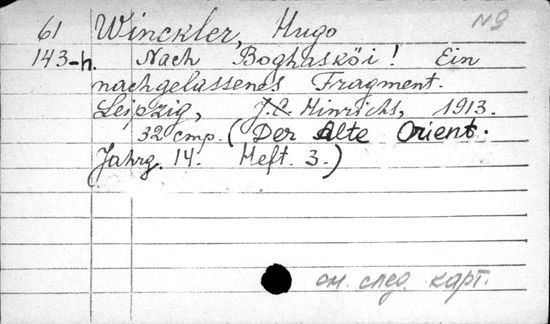 61 Winckler, Hugo №9
143-h. Nach Boghasköi! Ein
nachgelassenes Fragment.
Leipzig, J.C. Hinrichs, 1913.
32 стр. (Der Alte Orient.
Jahrg. 14. Heft. 3.)
см. след. карт.